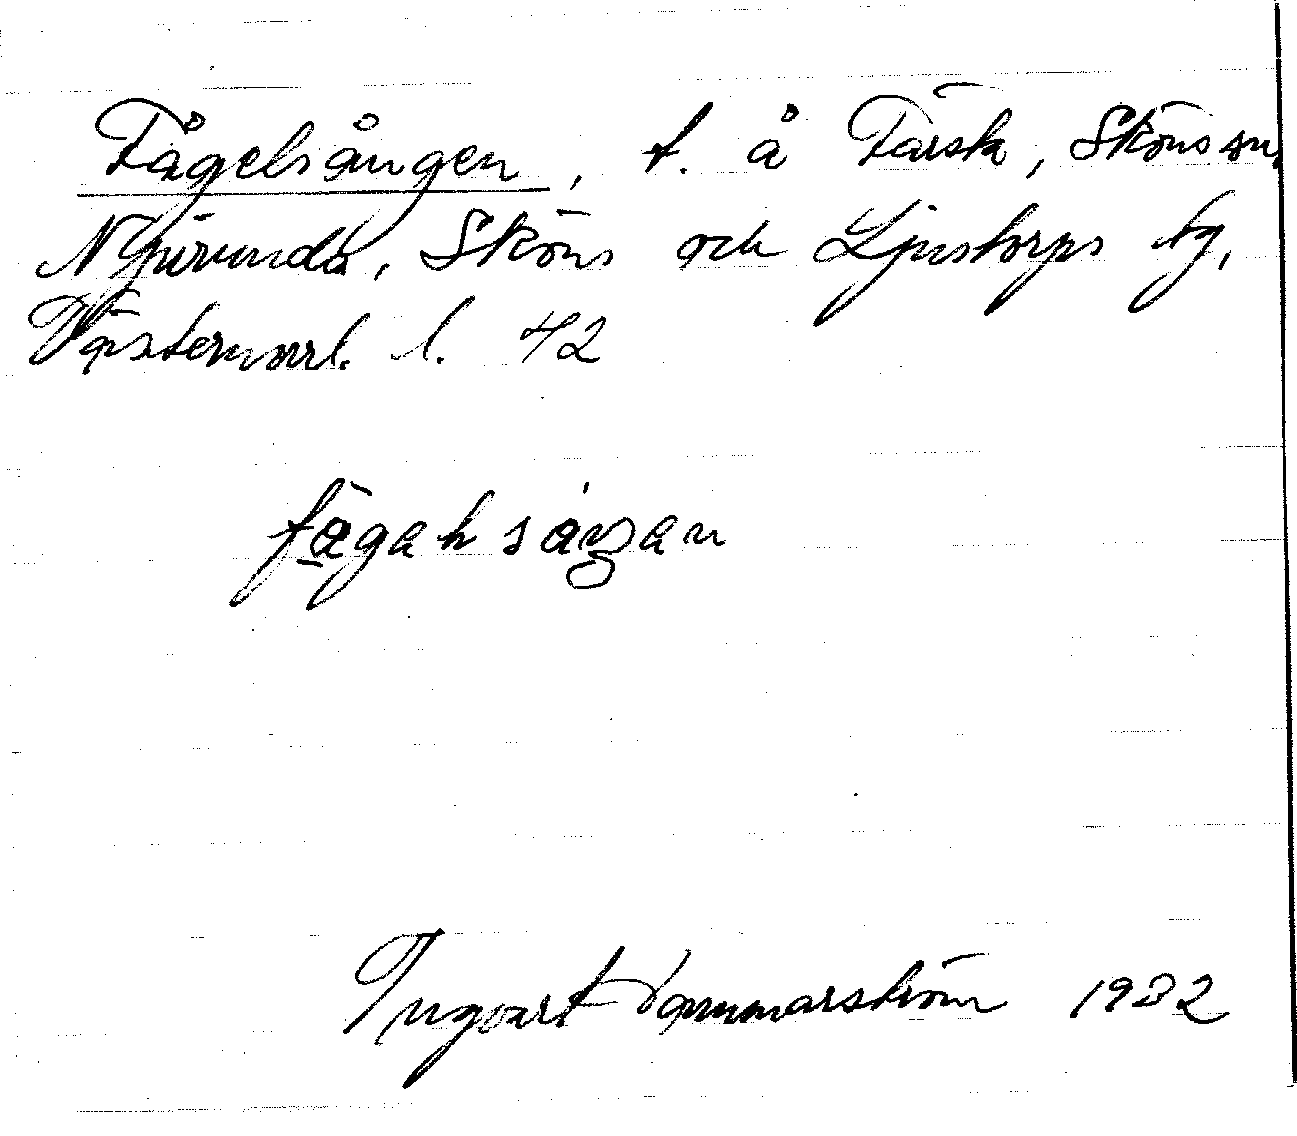 Fågelsången, t. å Färsta, Sköns sn,
Njurunda, Sköns och Ljustorps tg,
Västernorrl. l. 42
Ingvart Hammarström 1932